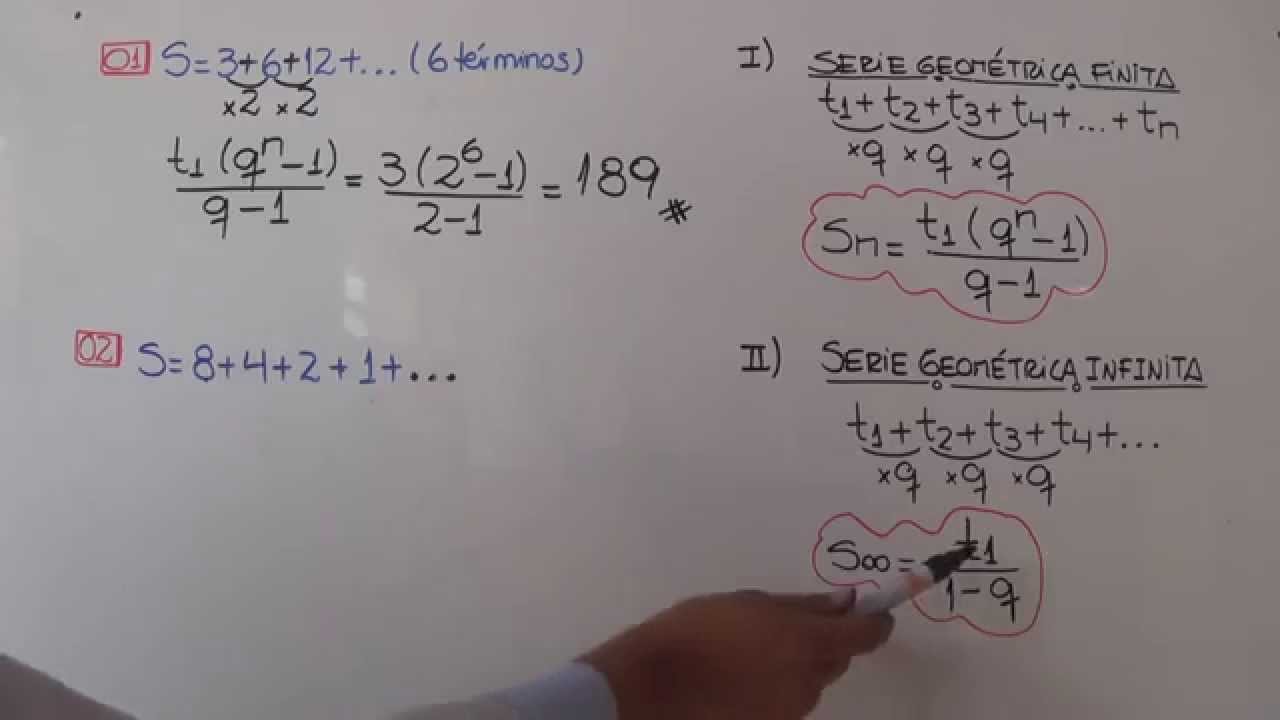 01 S=3+6+12+... (6 términos)
×2 ×2
t₁(qⁿ-1)/(q-1) = 3(2⁶-1)/(2-1) = 189 #
02 S=8+4+2+1+...
I) SERIE GEOMÉTRICA FINITA
t₁+t₂+t₃+t₄+...+tₙ
×q ×q ×q
Sₙ= t₁(qⁿ-1)/(q-1)
II) SERIE GEOMÉTRICA INFINITA
t₁+t₂+t₃+t₄+...
×q ×q ×q
S∞= t₁/(1-q)